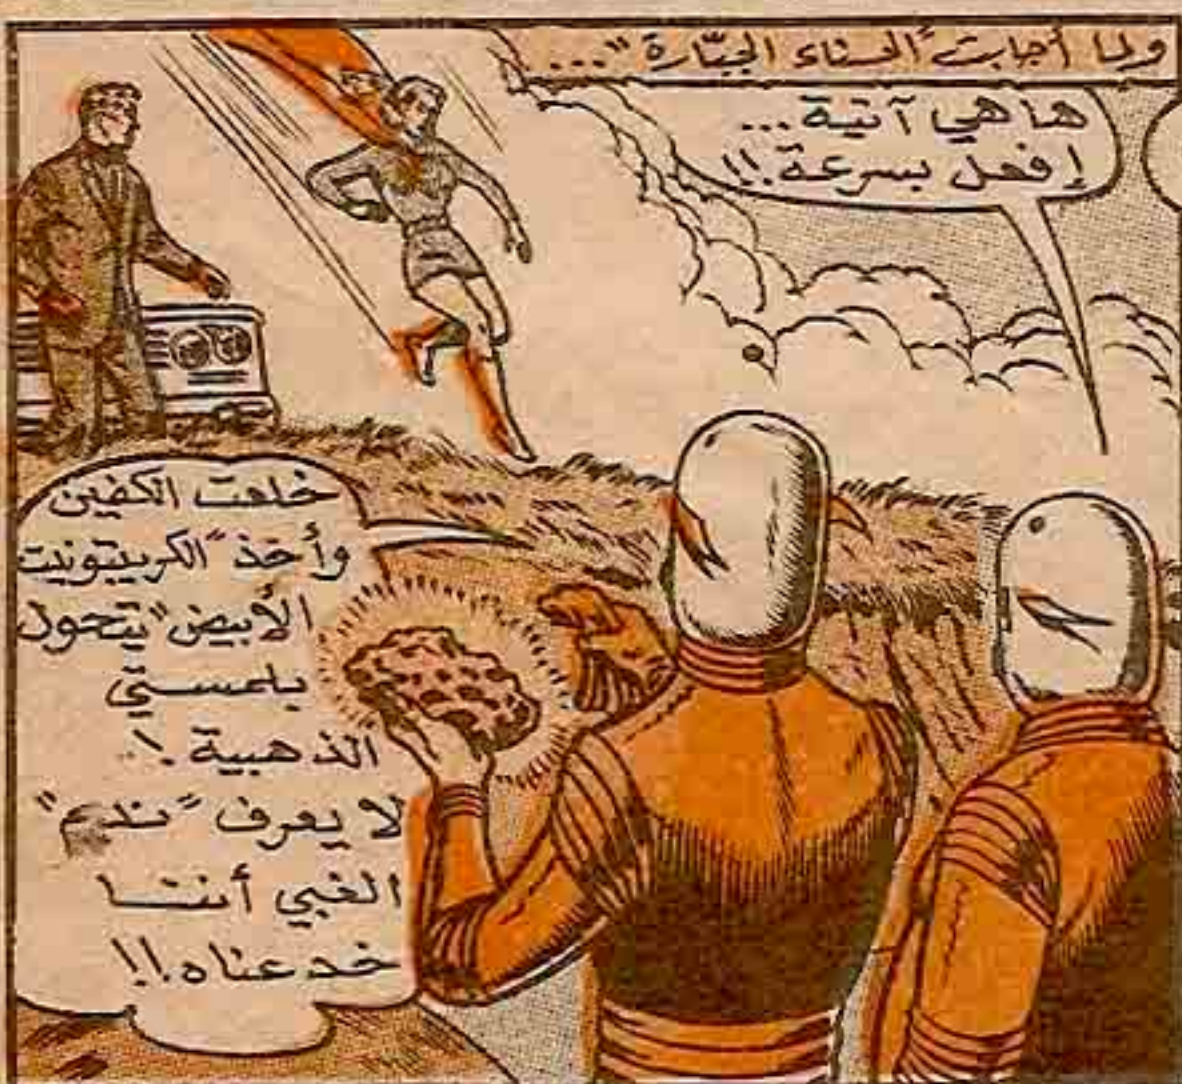 ولما أجابت "الحسناء الجبّارة"...
ها هي آتية...
إفعل بسرعة!!
خلعت الكفين
وأخذ "الكريبتونيت
الأبيض" يتحول
بلمستي
الذهبية!
لا يعرف "نديم"
الغبي أننا
خدعناه!!